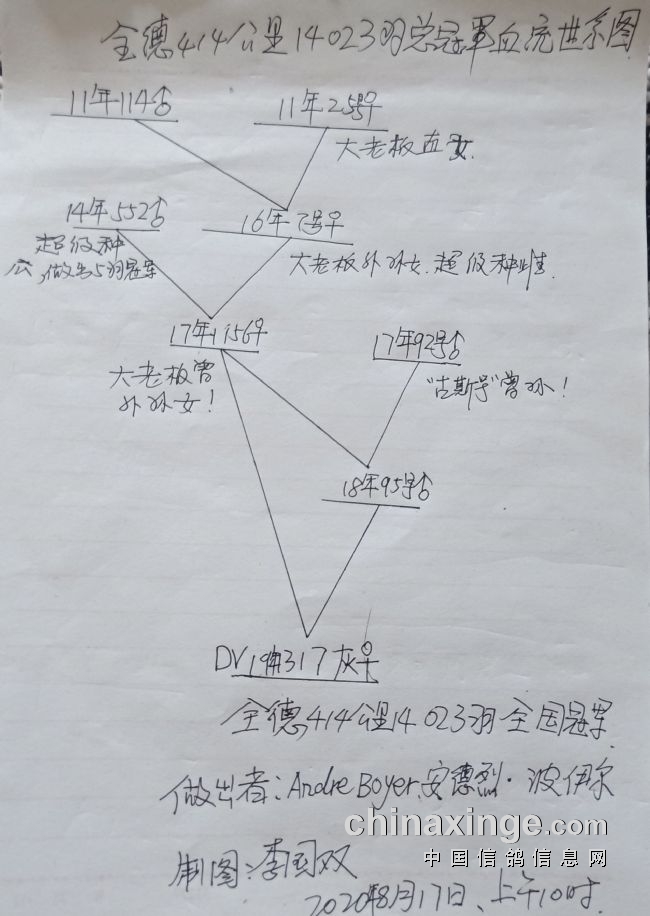 全德414公里14023羽总冠军血统世系图
11年114♂
11年25号♀
大老板直女.
14年552♂
16年7号♀
超级种
公,做出5羽冠军
大老板外孙女.超级种雌.
17年1156♀
17年92号♂
大老板曾
外孙女!
"古斯号"曾孙!
18年95号♂
DV19年317灰♀
全德414公里14023羽全国冠军.
做出者:Andre Boyer.安德烈·波伊尔
chinaxinge.com
中国信鸽信息网
制图:李国双
2020年8月17日、上午10时.